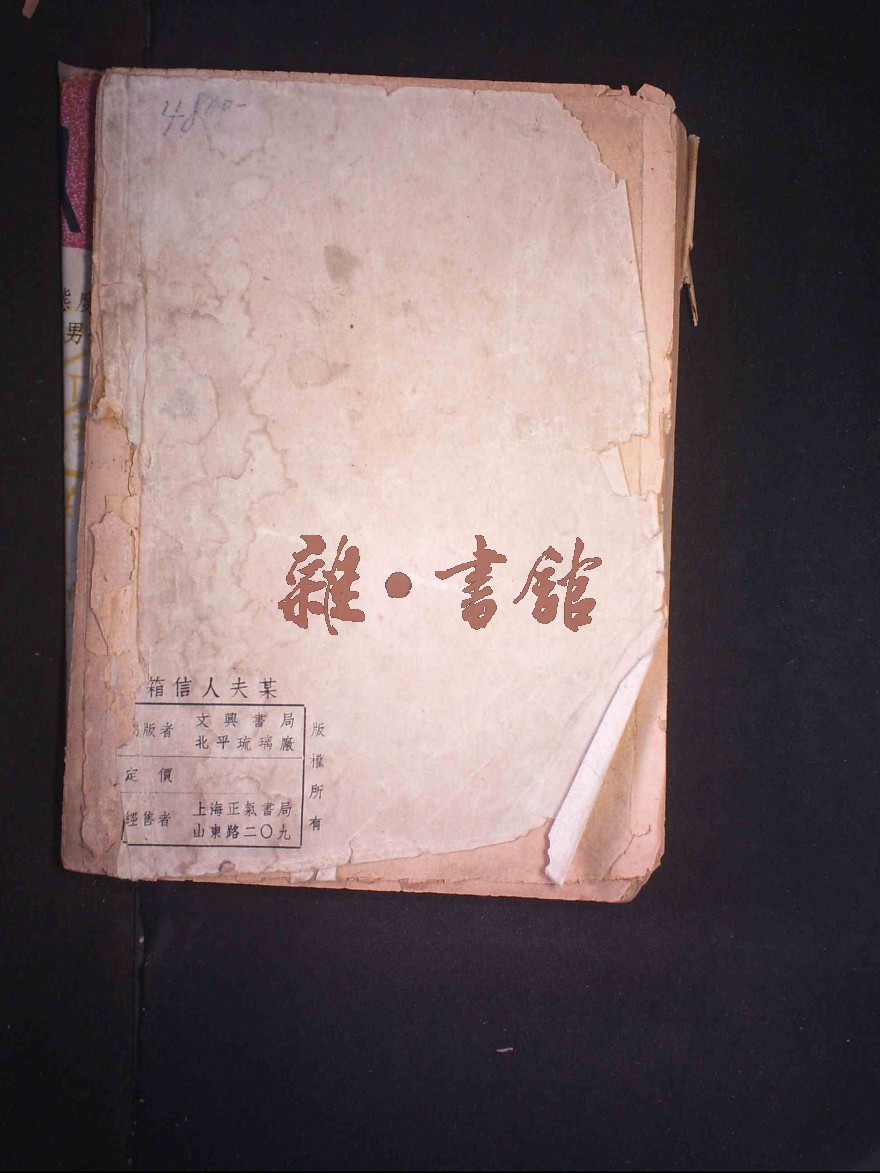 4800-
態度
男
雜·書館
某夫人信箱
版者 文興書局
北平琉璃廠
定價
經售者 上海正氣書局
山東路二〇九
版權所有